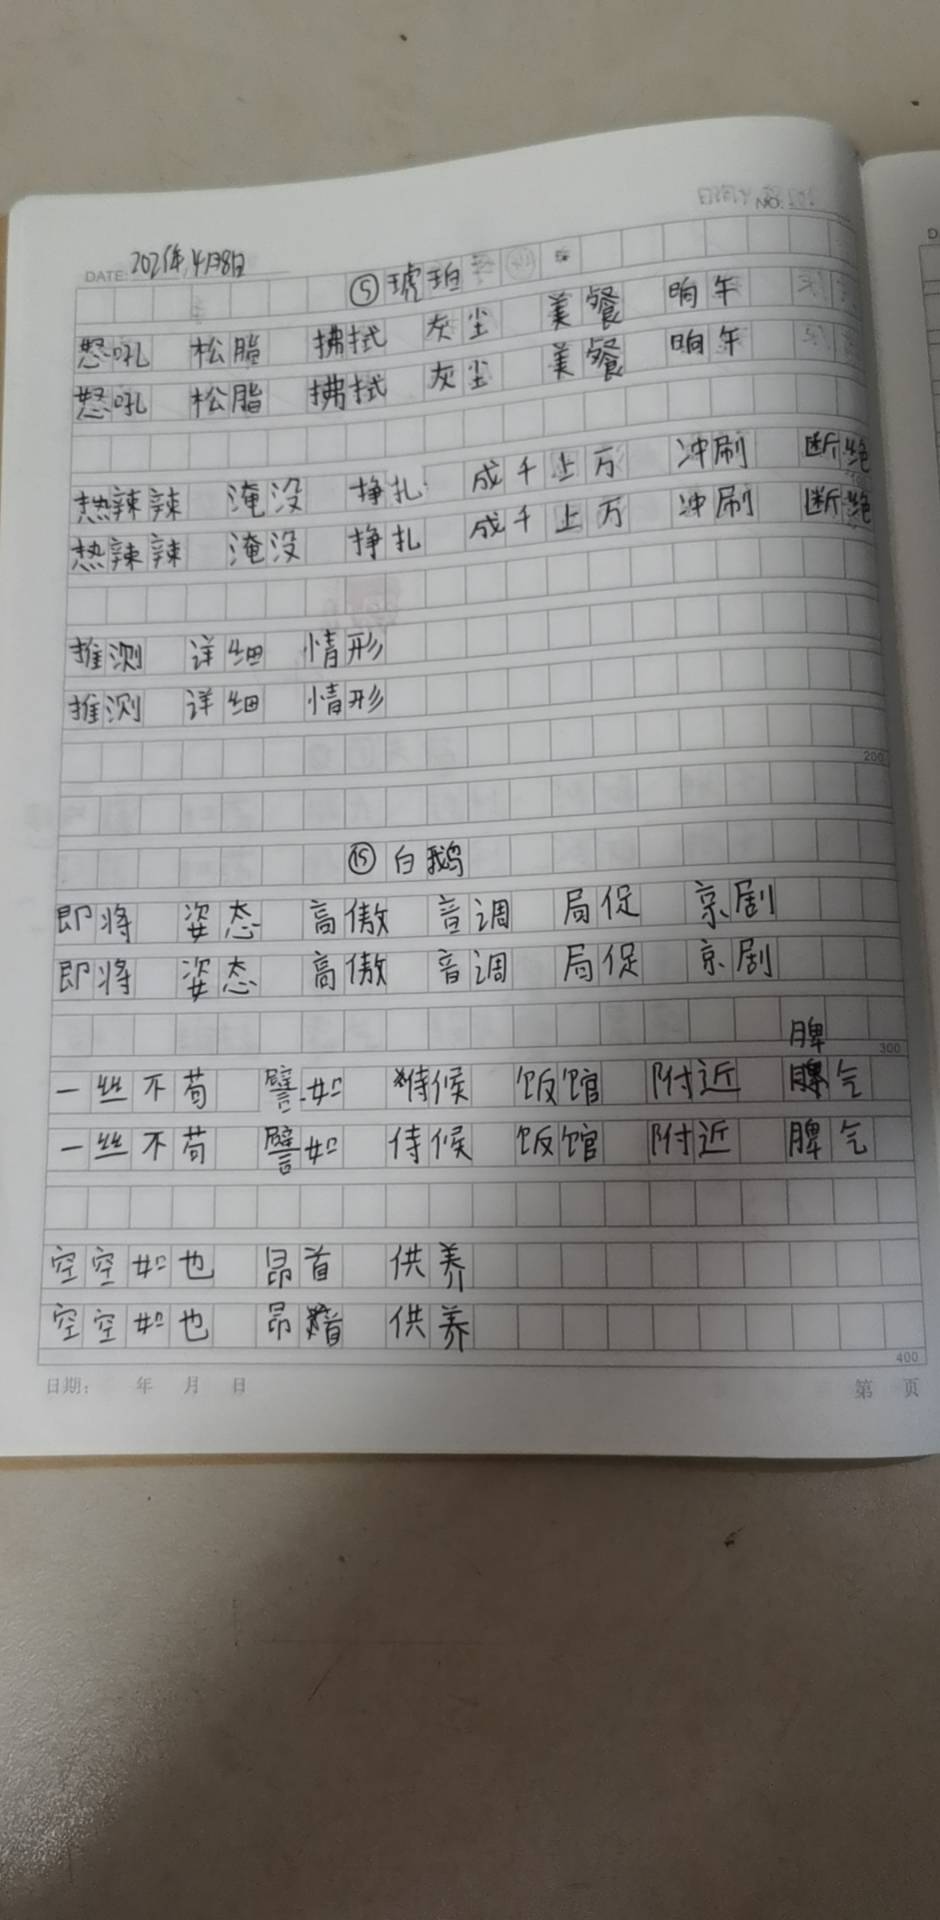 DATE: 2021年4月8日
NO.
⑤琥珀
怒吼 松脂 拂拭 灰尘 美餐 晌午
怒吼 松脂 拂拭 灰尘 美餐 晌午
热辣辣 淹没 挣扎 成千上万 冲刷 断绝
热辣辣 淹没 挣扎 成千上万 冲刷 断绝
推测 详细 情形
推测 详细 情形
200
⑮白鹅
即将 姿态 高傲 音调 局促 京剧
即将 姿态 高傲 音调 局促 京剧
脾
300
一丝不苟 譬如 侍候 饭馆 附近 脾气
一丝不苟 譬如 侍候 饭馆 附近 脾气
空空如也 昂首 供养
空空如也 昂首 供养
400
日期: 年 月 日 第 页
D